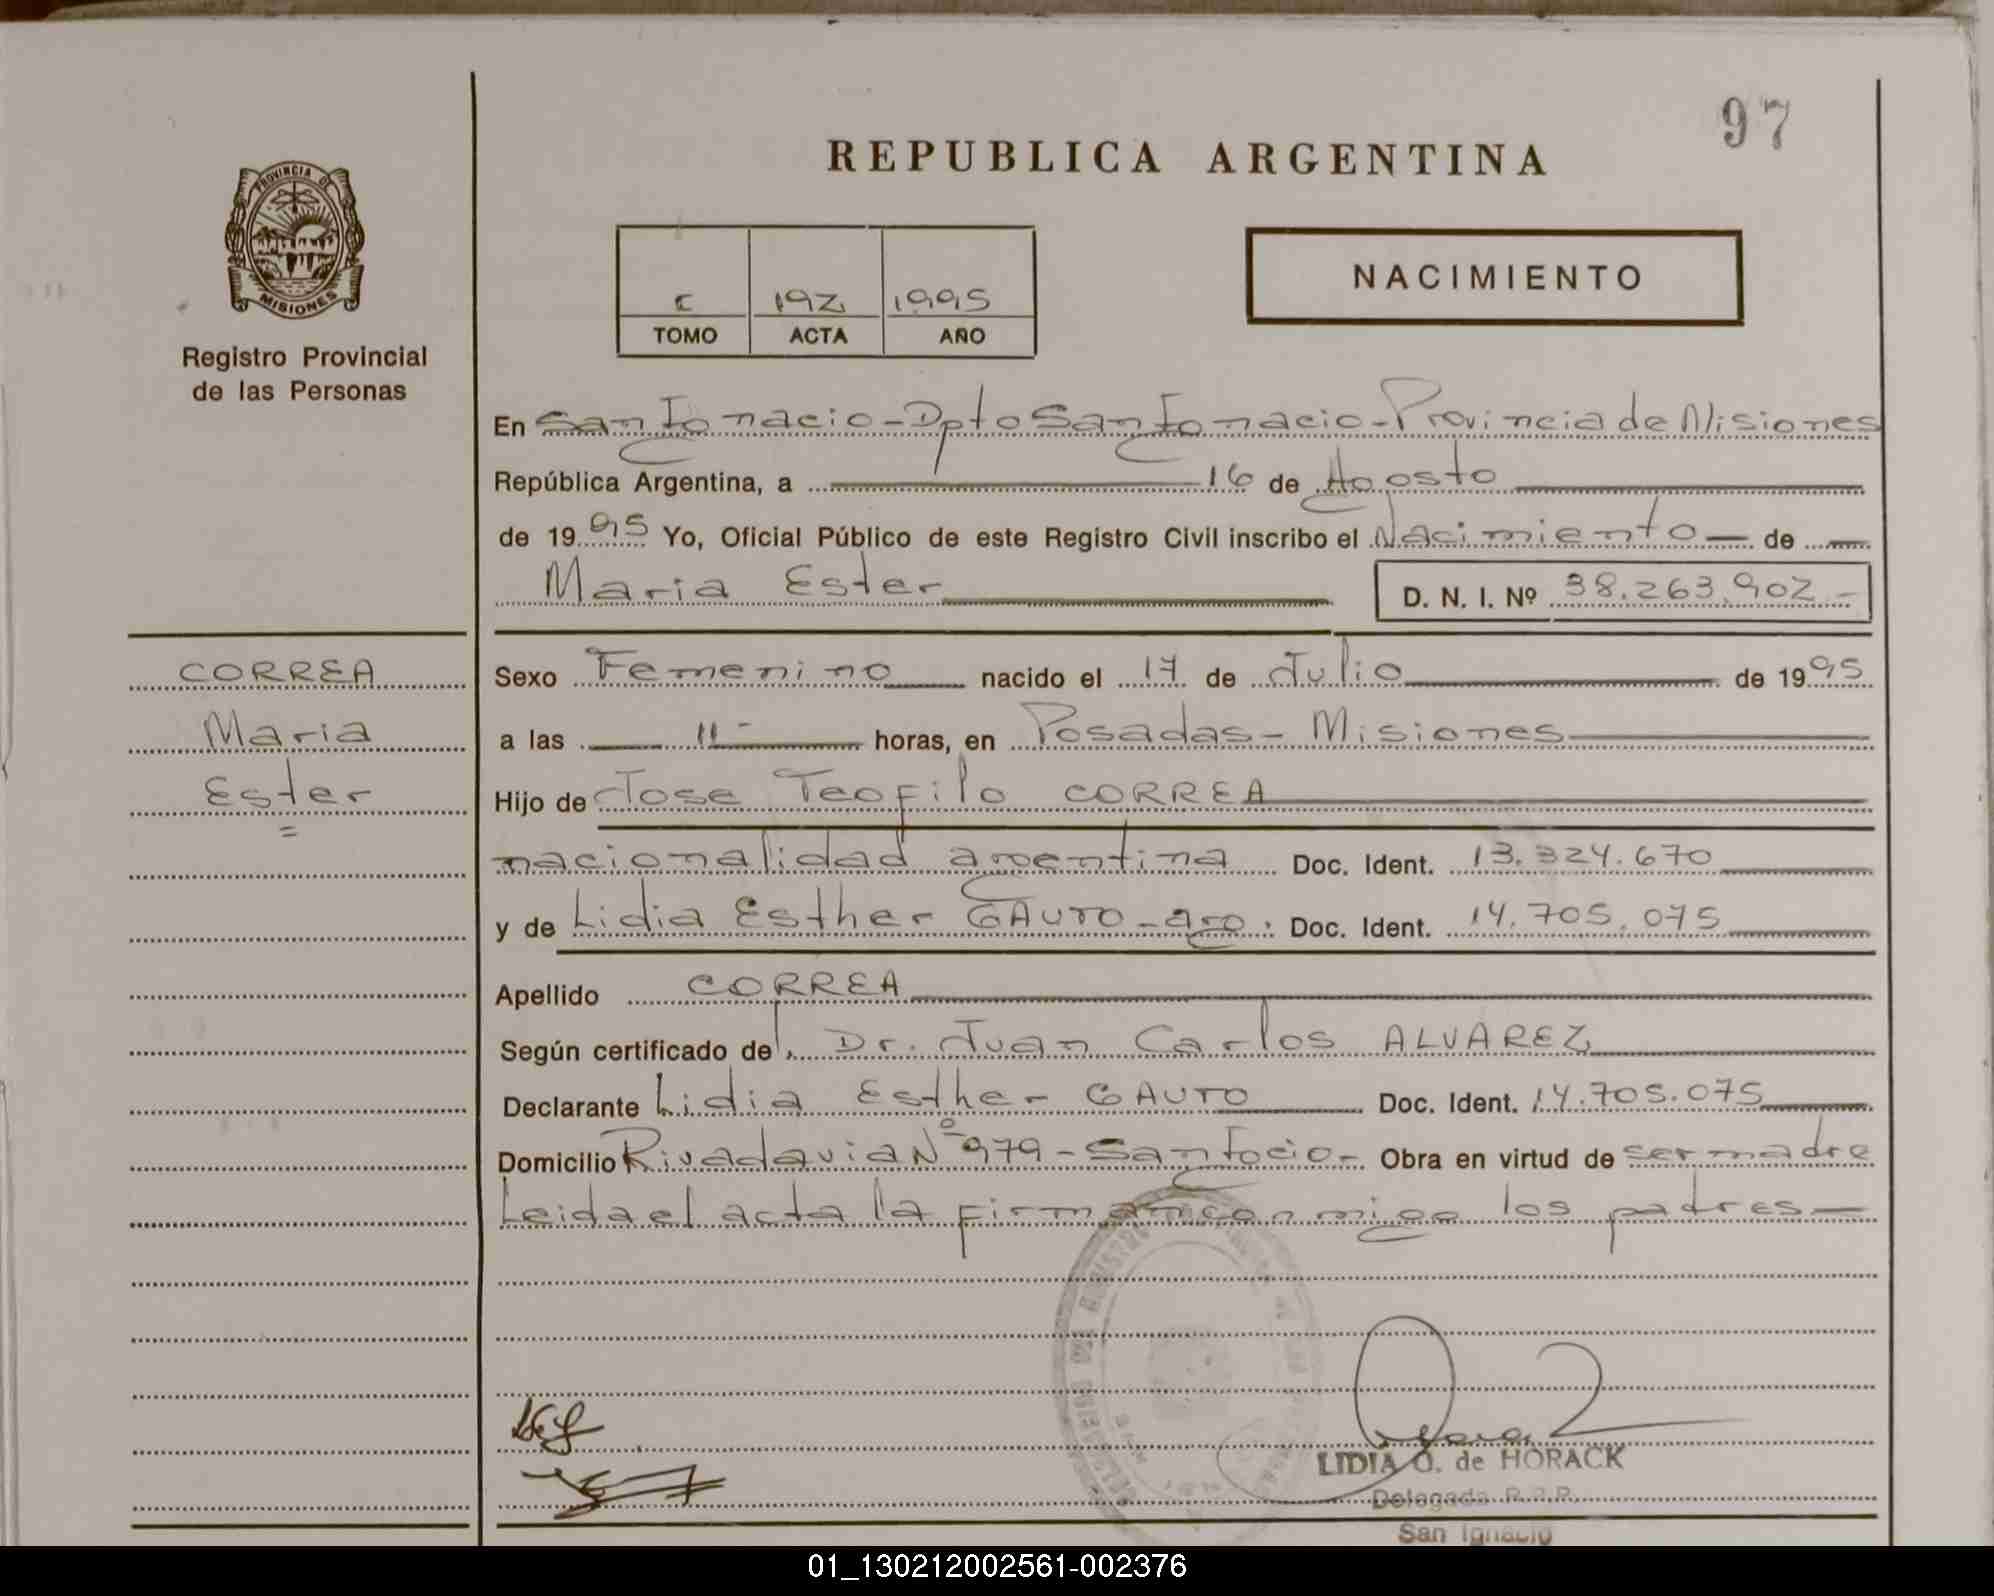 97
REPUBLICA ARGENTINA
PROVINCIA DE
MISIONES
Registro Provincial
de las Personas
C 192 1995
TOMO ACTA AÑO
NACIMIENTO
En San Ignacio - Dpto San Ignacio - Provincia de Misiones
República Argentina, a 16 de Agosto
de 1995 Yo, Oficial Público de este Registro Civil inscribo el Nacimiento — de
Maria Ester D. N. I. Nº 38.263.902 -
CORREA
Maria
Ester
=
Sexo Femenino nacido el 17 de Julio de 1995
a las 11- horas, en Posadas - Misiones
Hijo de Jose Teofilo CORREA
nacionalidad argentina Doc. Ident. 13.324.670
y de Lidia Esther GAUTO - arg. Doc. Ident. 14.705.075
Apellido CORREA
Según certificado del Dr. Juan Carlos ALVAREZ
Declarante Lidia Esther GAUTO Doc. Ident. 14.705.075
Domicilio Rivadavia Nº 979 - San Igcio - Obra en virtud de ser madre
Leida el acta la firman conmigo los padres -
LIDIA O. de HORACK
Delegada R.P.P.
San Ignacio
01_130212002561-002376